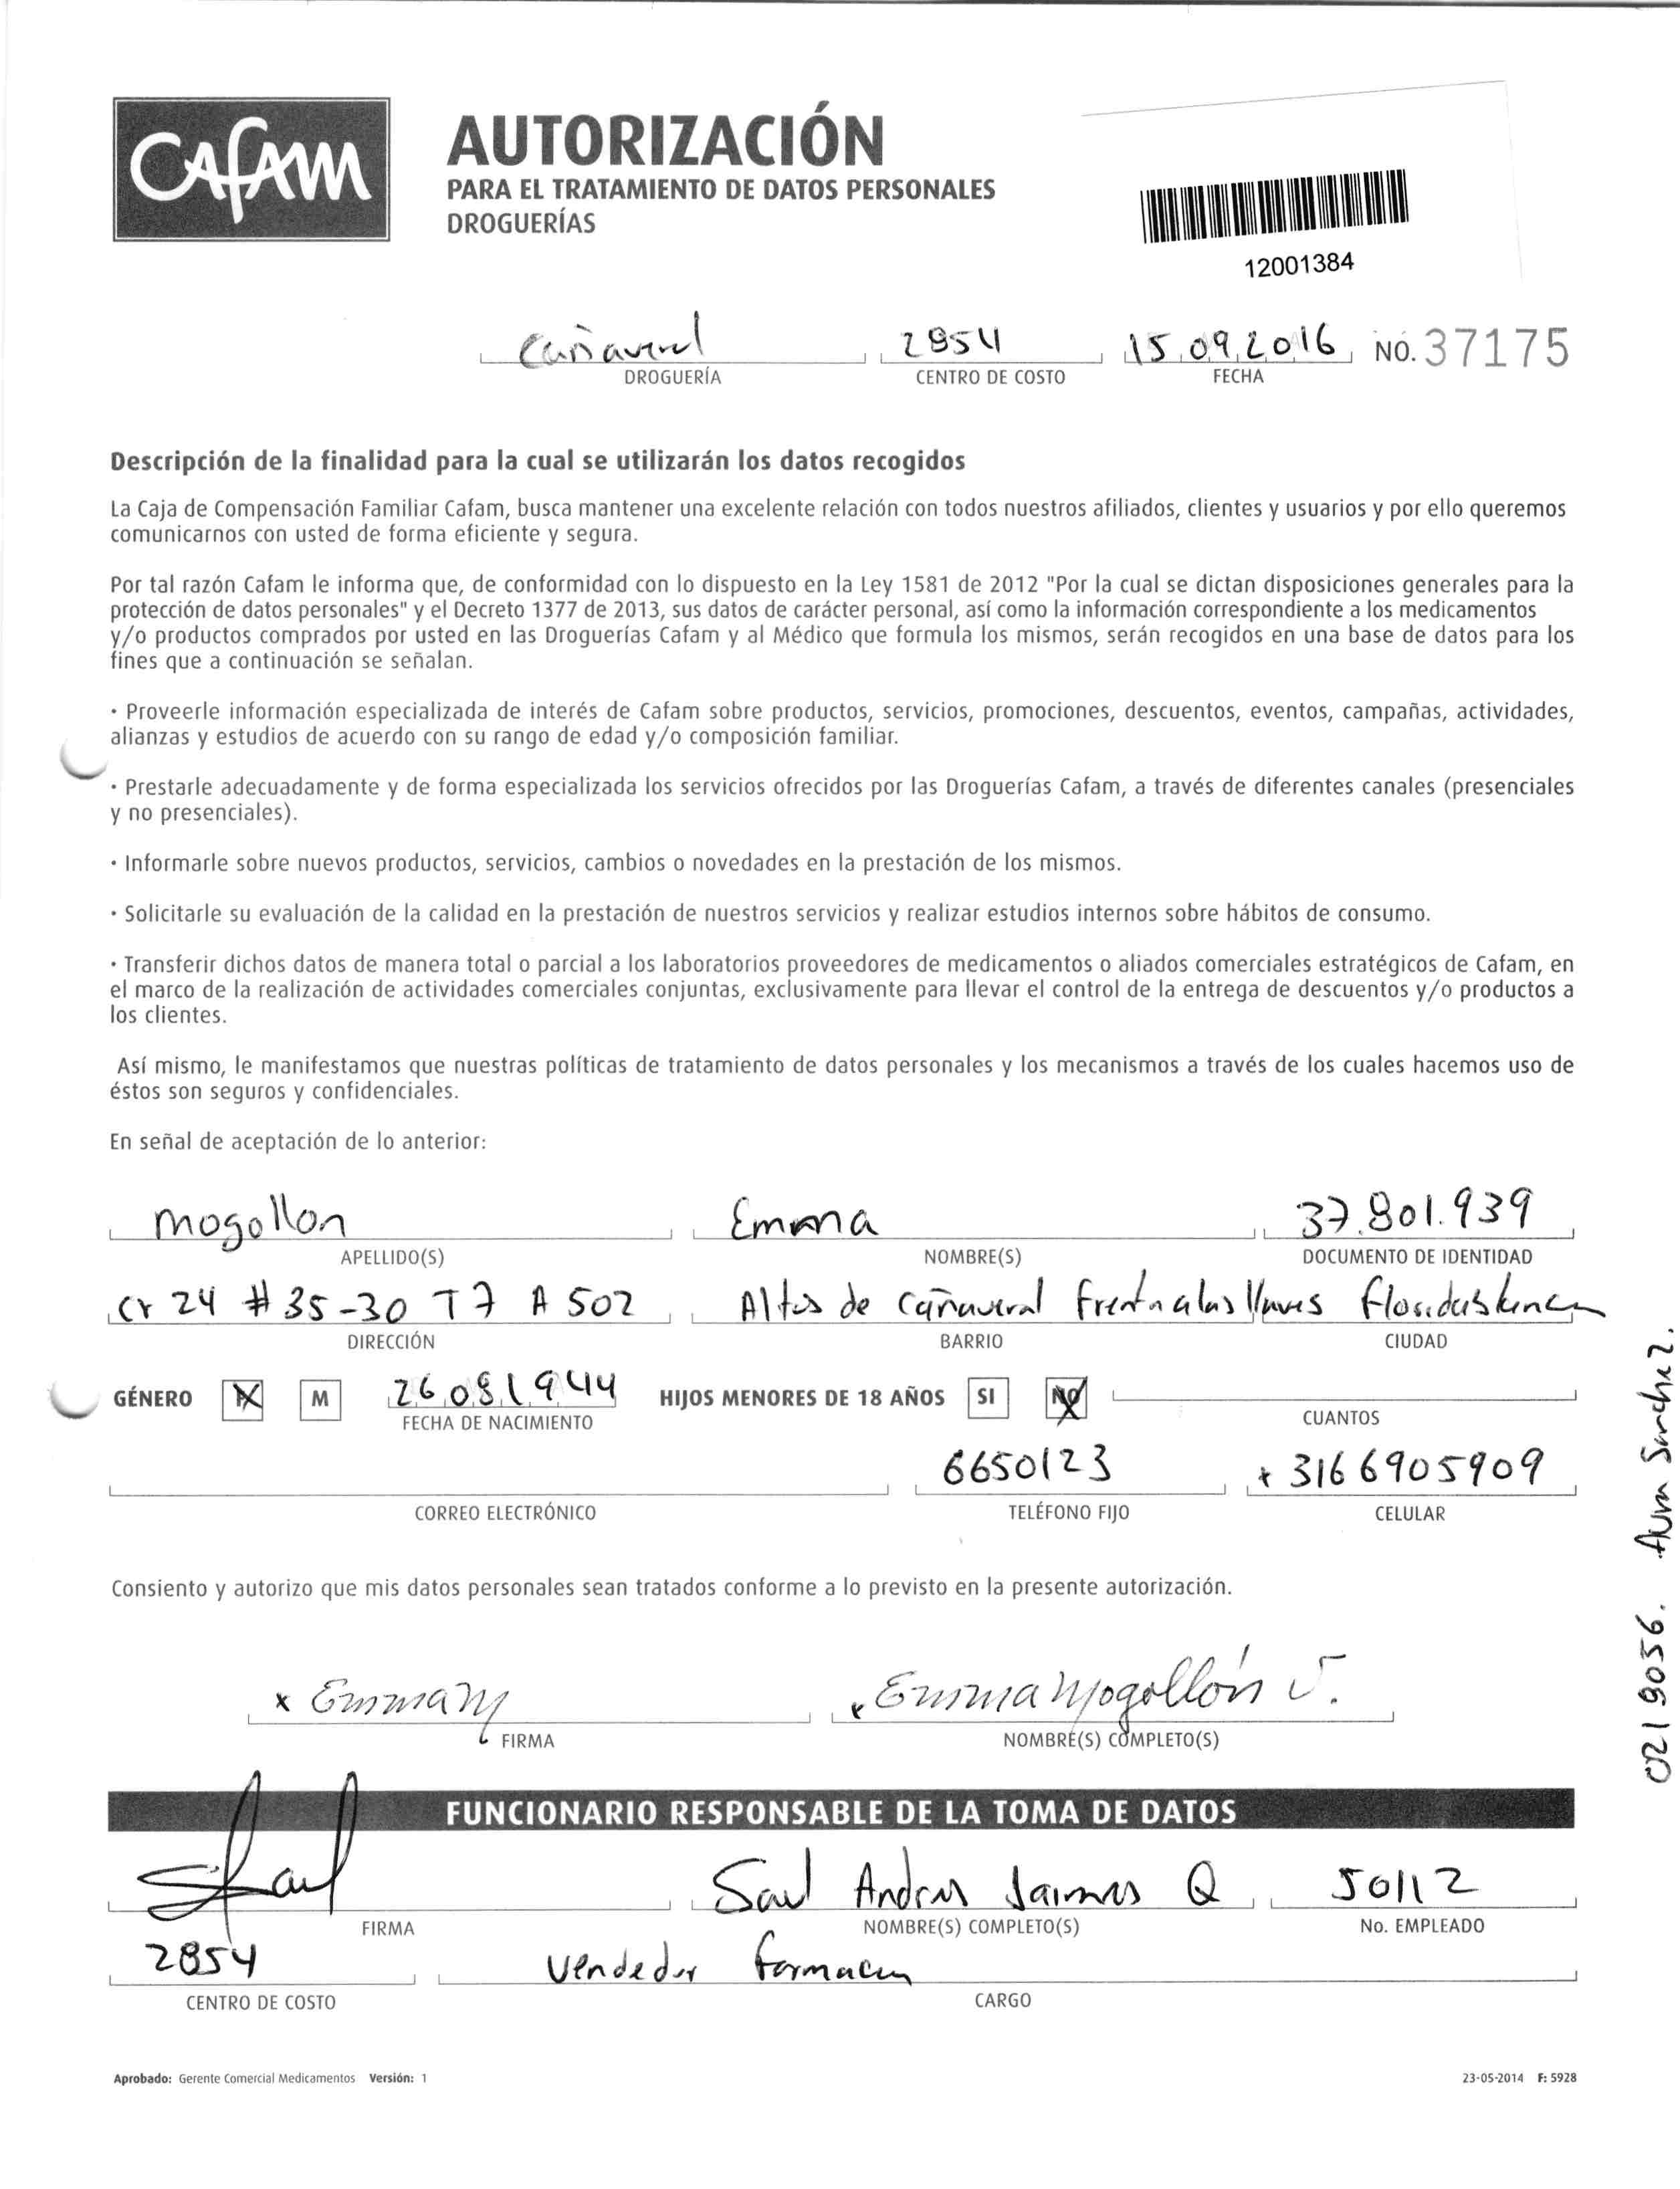 CAFAM
AUTORIZACIÓN
PARA EL TRATAMIENTO DE DATOS PERSONALES
DROGUERÍAS
12001384
Cañaveral 2854 15 09 2016 NO. 37175
DROGUERÍA CENTRO DE COSTO FECHA
Descripción de la finalidad para la cual se utilizarán los datos recogidos
La Caja de Compensación Familiar Cafam, busca mantener una excelente relación con todos nuestros afiliados, clientes y usuarios y por ello queremos
comunicarnos con usted de forma eficiente y segura.
Por tal razón Cafam le informa que, de conformidad con lo dispuesto en la Ley 1581 de 2012 "Por la cual se dictan disposiciones generales para la
protección de datos personales" y el Decreto 1377 de 2013, sus datos de carácter personal, así como la información correspondiente a los medicamentos
y/o productos comprados por usted en las Droguerías Cafam y al Médico que formula los mismos, serán recogidos en una base de datos para los
fines que a continuación se señalan.
· Proveerle información especializada de interés de Cafam sobre productos, servicios, promociones, descuentos, eventos, campañas, actividades,
alianzas y estudios de acuerdo con su rango de edad y/o composición familiar.
· Prestarle adecuadamente y de forma especializada los servicios ofrecidos por las Droguerías Cafam, a través de diferentes canales (presenciales
y no presenciales).
· Informarle sobre nuevos productos, servicios, cambios o novedades en la prestación de los mismos.
· Solicitarle su evaluación de la calidad en la prestación de nuestros servicios y realizar estudios internos sobre hábitos de consumo.
· Transferir dichos datos de manera total o parcial a los laboratorios proveedores de medicamentos o aliados comerciales estratégicos de Cafam, en
el marco de la realización de actividades comerciales conjuntas, exclusivamente para llevar el control de la entrega de descuentos y/o productos a
los clientes.
Así mismo, le manifestamos que nuestras políticas de tratamiento de datos personales y los mecanismos a través de los cuales hacemos uso de
éstos son seguros y confidenciales.
En señal de aceptación de lo anterior:
Mogollon Emma 37.801.939
APELLIDO(S) NOMBRE(S) DOCUMENTO DE IDENTIDAD
Cr 24 # 35-30 T 7 A 502 Altos de Cañaveral Frente a las llaves Floridablanca
DIRECCIÓN BARRIO CIUDAD
GÉNERO F M 26 08 1944 HIJOS MENORES DE 18 AÑOS SI NO
FECHA DE NACIMIENTO CUANTOS
6650123 3166905909
CORREO ELECTRÓNICO TELÉFONO FIJO CELULAR
Consiento y autorizo que mis datos personales sean tratados conforme a lo previsto en la presente autorización.
x Emma M x Emma Mogollón J.
FIRMA NOMBRE(S) COMPLETO(S)
FUNCIONARIO RESPONSABLE DE LA TOMA DE DATOS
Saul Andres Jaimes Q 50112
FIRMA NOMBRE(S) COMPLETO(S) No. EMPLEADO
2854 Vendedor Farmacia
CENTRO DE COSTO CARGO
Aprobado: Gerente Comercial Medicamentos Versión: 1 23-05-2014 F: 5928
0219056. Sanchez.